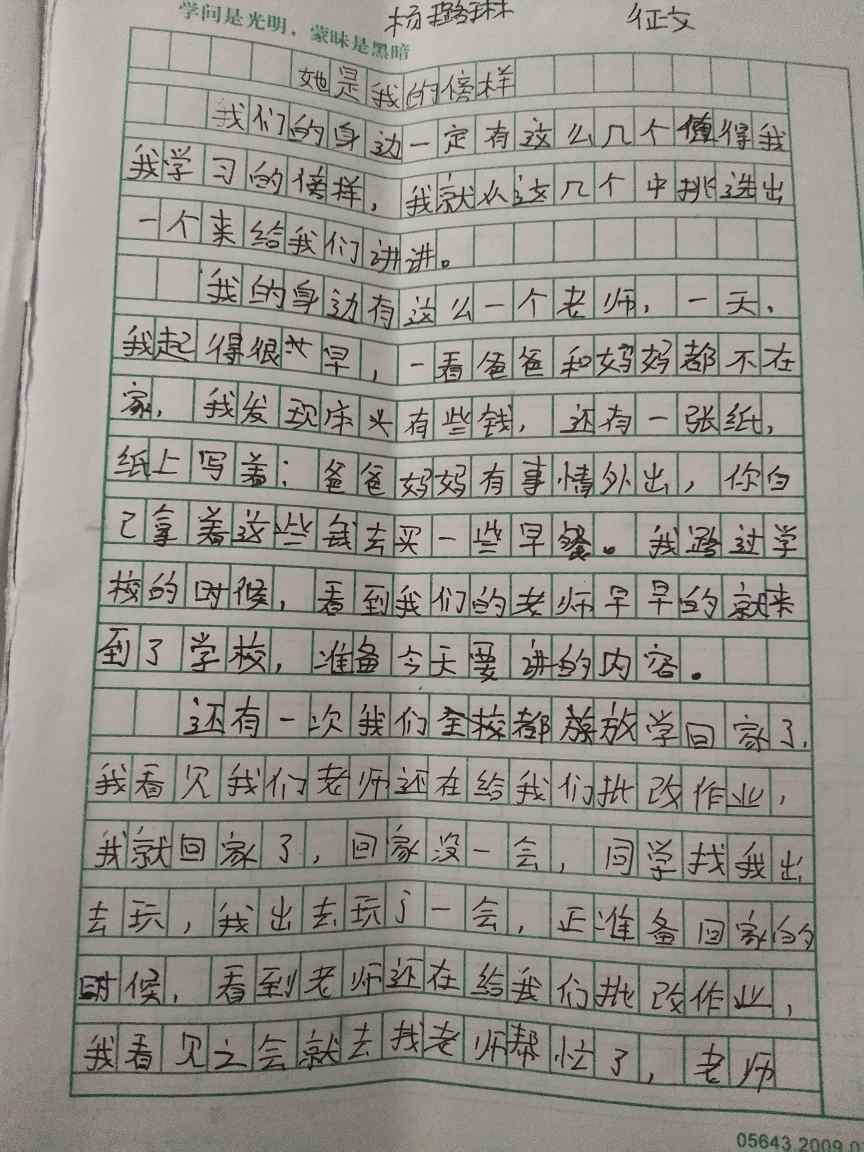 学问是光明，蒙昧是黑暗
杨璐琳 征文
她是我的傍样
我们的身边一定有这么几个值得我
我学习的傍样，我就从这几个中挑选出
一个来给我们讲讲。
我的身边有这么一个老师，一天，
我起得很早，一看爸爸和妈妈都不在
家，我发现床头有些钱，还有一张纸，
纸上写着：爸爸妈妈有事情外出，你自
己拿着这些钱去买一些早餐。我路过学
校的时候，看到我们的老师早早的就来
到了学校，准备今天要讲的内容。
还有一次我们全校都放学回家了，
我看见我们老师还在给我们批改作业，
我就回家了，回家没一会，同学找我出
去玩，我出去玩了一会，正准备回家的
时候，看到老师还在给我们批改作业，
我看见之会就去找老师帮忙了，老师
05643.2009.0